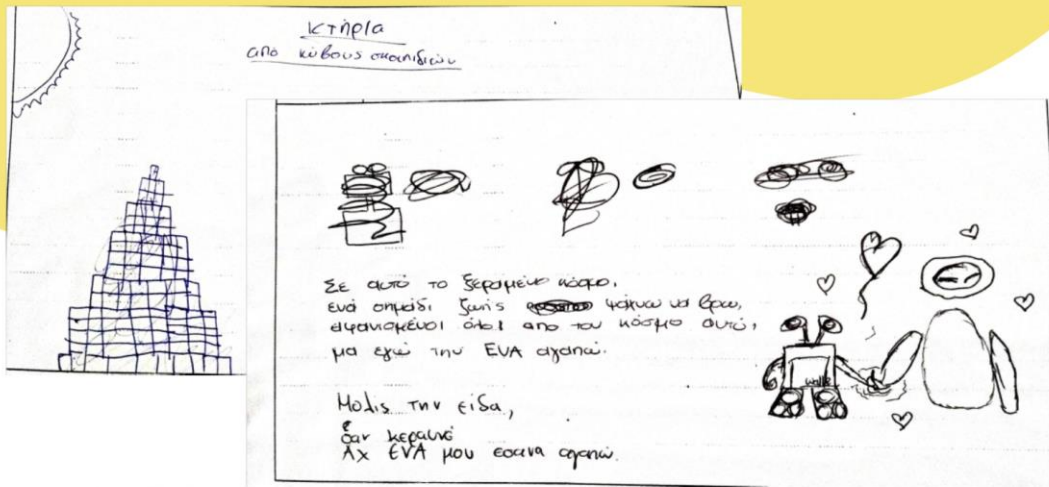 κτήρια
από κύβους σκουπιδιών
Σε αυτό το ξεραμένο κόσμο,
ενα σημάδι ζωής ψάχνω να βρω,
αφανισμένοι όλοι απο τον κόσμο αυτό,
μα εγώ την EVA αγαπώ.
Μολις την είδα,
σαν κεραυνό
Αχ EVA μου εσενα αγαπώ.
walle